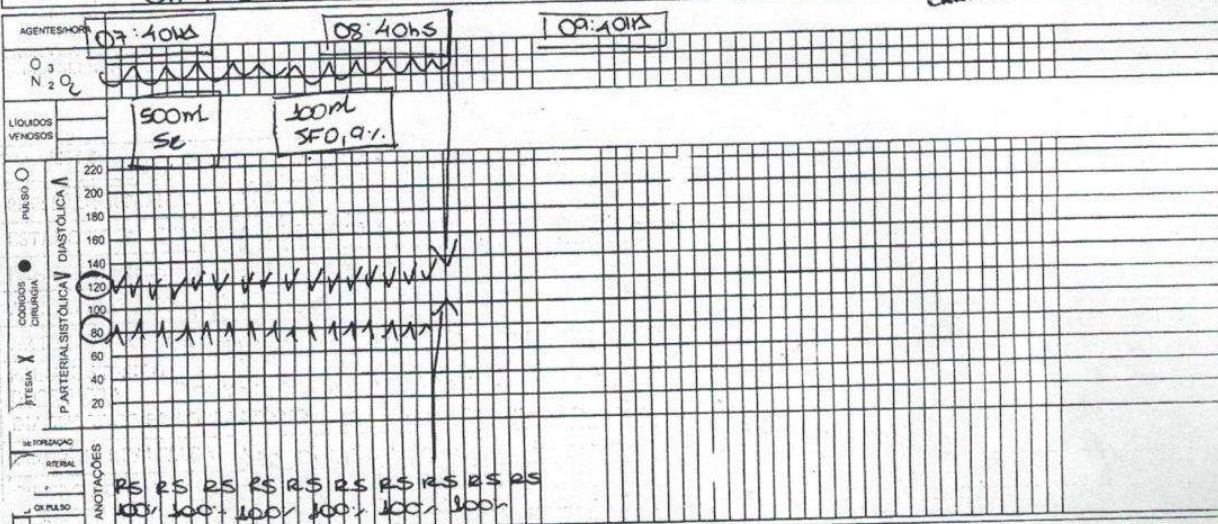 AGENTES/HORA 07:40hs 08:40hs 09:40hs
O 3
N 2 O 2
LÍQUIDOS VENOSOS
500ml 100ml
SF0,9%
PULSO O
CÓDIGOS ● CIRURGIA
STESIA X
P. ARTERIAL SISTÓLICA V DIASTÓLICA Λ
220
200
180
160
140
120
100
80
60
40
20
ANOTAÇÕES
RTERIAL
RS RS RS RS RS RS RS RS RS RS
OX PULSO
100% 100% 100% 100% 100% 100%